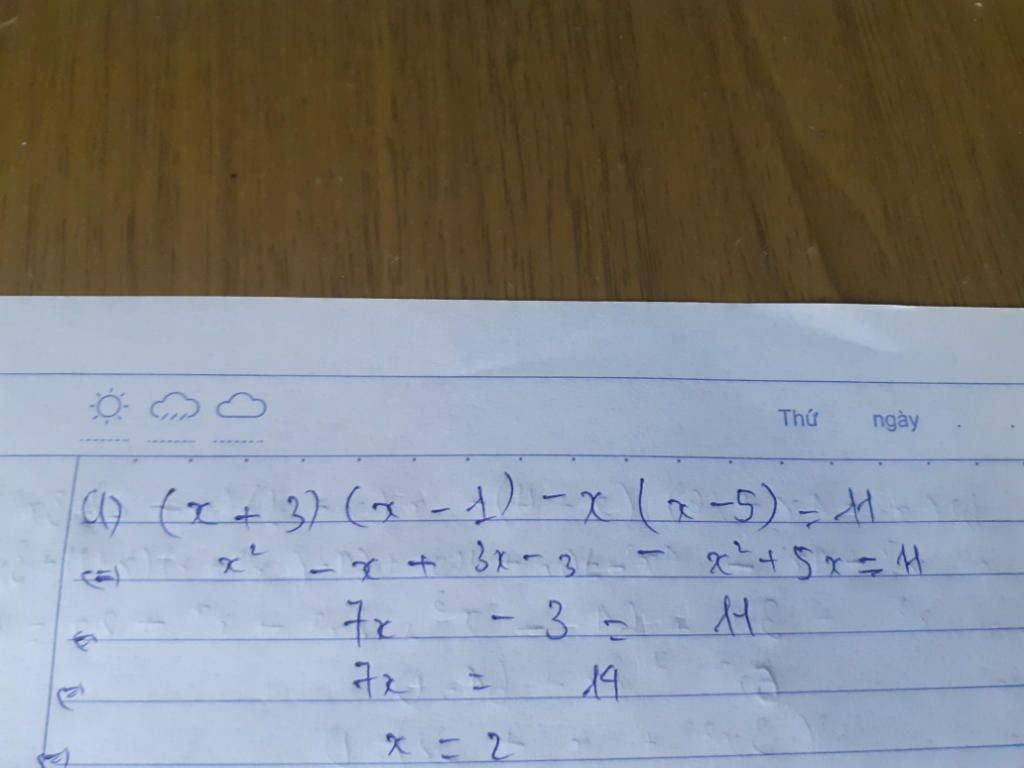 Thứ ngày
d) (x + 3) (x - 1) - x (x - 5) = 11
(=) x² - x + 3x - 3 - x² + 5x = 11
(=) 7x - 3 = 11
(=) 7x = 14
(=) x = 2